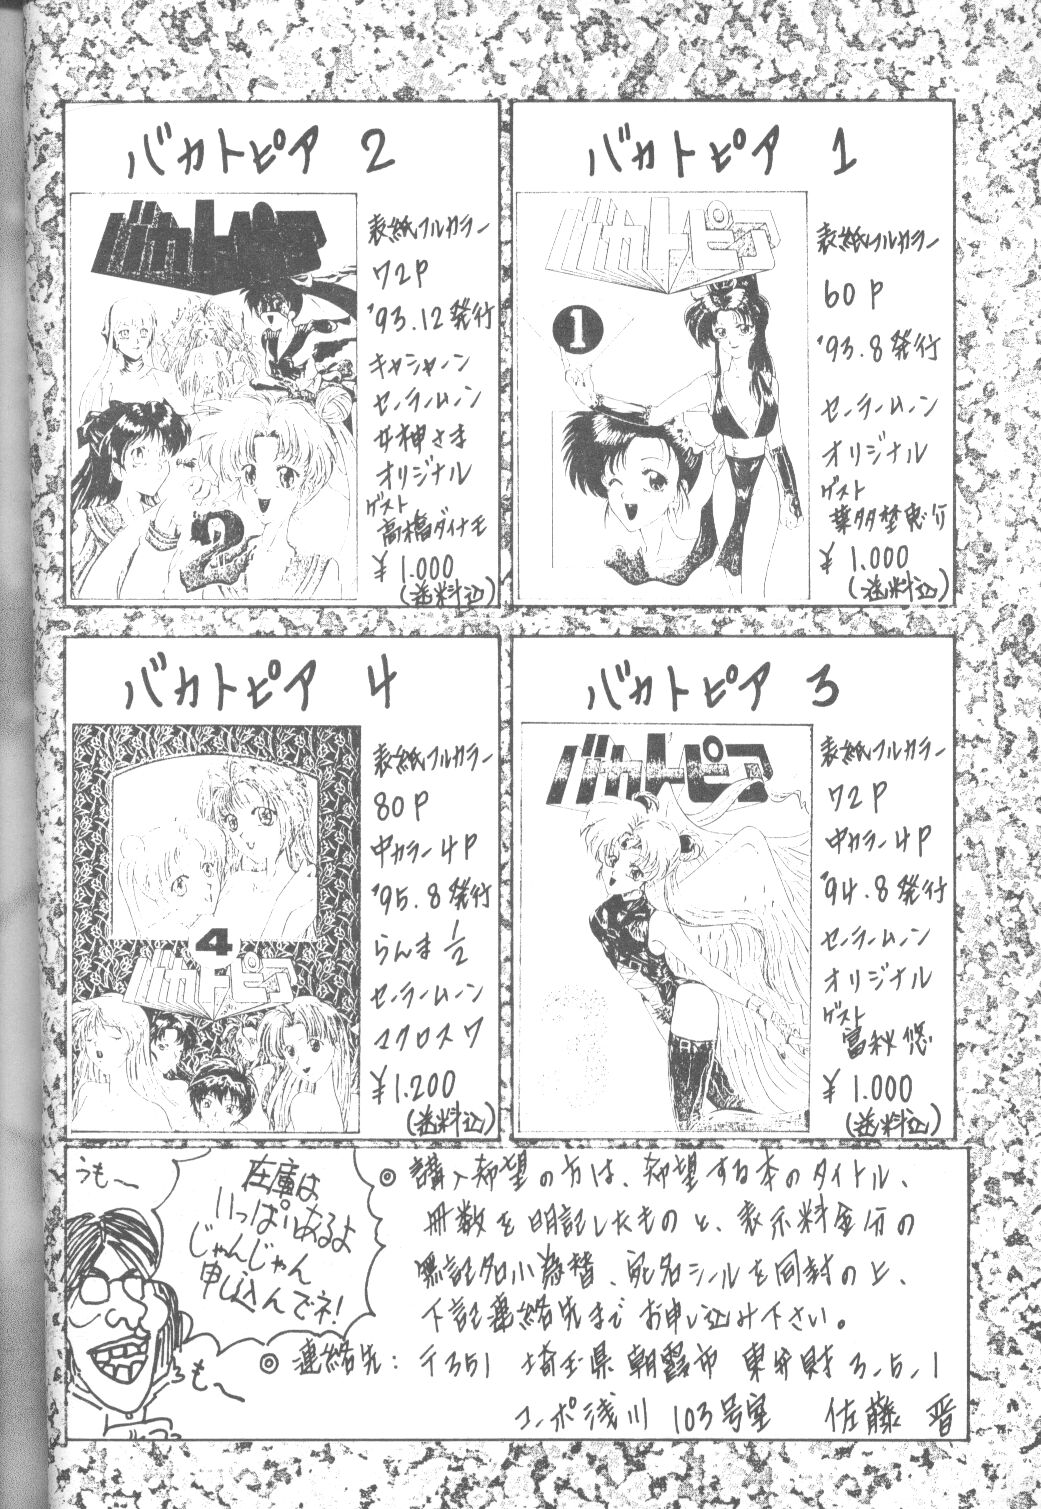 バカトピア 1
バカトピア
1
表紙フルカラー
60P
'93.8発行
セーラームーン
オリジナル
ゲスト
葉多埜恵介
¥1.000
(送料込)
バカトピア 2
バカトピア
2
表紙フルカラー
72P
'93.12発行
キャシャーン
セーラームーン
女神さま
オリジナル
ゲスト
高橋ダイナモ
¥1.000
(送料込)
バカトピア 3
バカトピア
3
表紙フルカラー
72P
中カラー4P
'94.8発行
セーラームーン
オリジナル
ゲスト
富秋悠
¥1.000
(送料込)
バカトピア 4
4
バカトピア
表紙フルカラー
80P
中カラー4P
'95.8発行
らんま1/2
セーラームーン
マクロス7
¥1.200
(送料込)
うも〜
在庫は
いっぱいあるよ
じゃんじゃん
申し込んでネ!
うも〜
◎購入希望の方は、希望する本のタイトル、
冊数を明記したものと、表示料金分の
無記名小為替、宛名シールを同封の上、
下記連絡先までお申し込み下さい。
◎連絡先:〒351 埼玉県朝霞市 東弁財 3-5-1
コーポ浅川 103号室 佐藤 晋